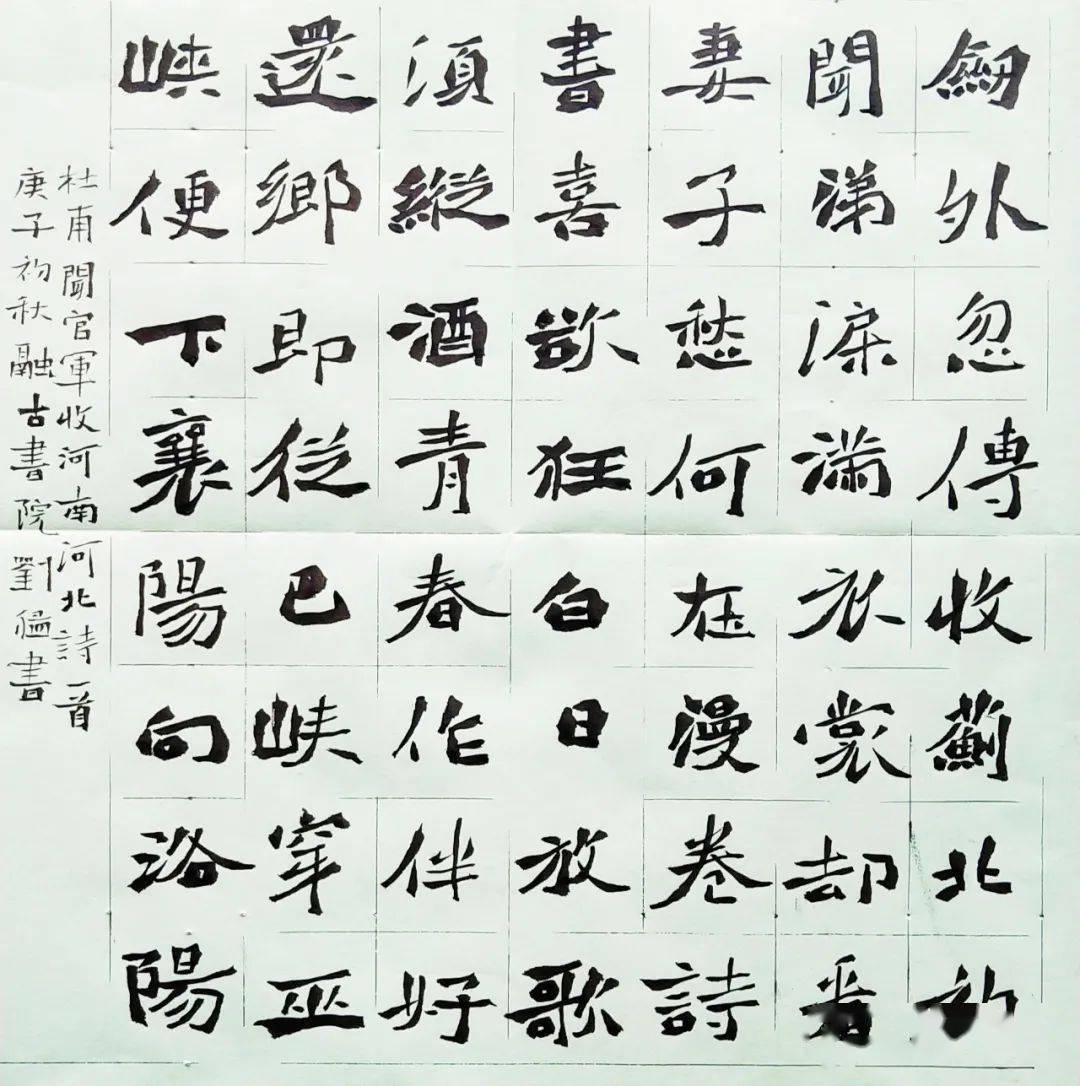 劒外忽傳收薊北初
聞涕淚滿衣裳却看
妻子愁何在漫卷詩
書喜欲狂白日放歌
須縱酒青春作伴好
還鄉即從巴峽穿巫
峽便下襄陽向洛陽
杜甫聞官軍收河南河北詩一首
庚子初秋融古書院劉書